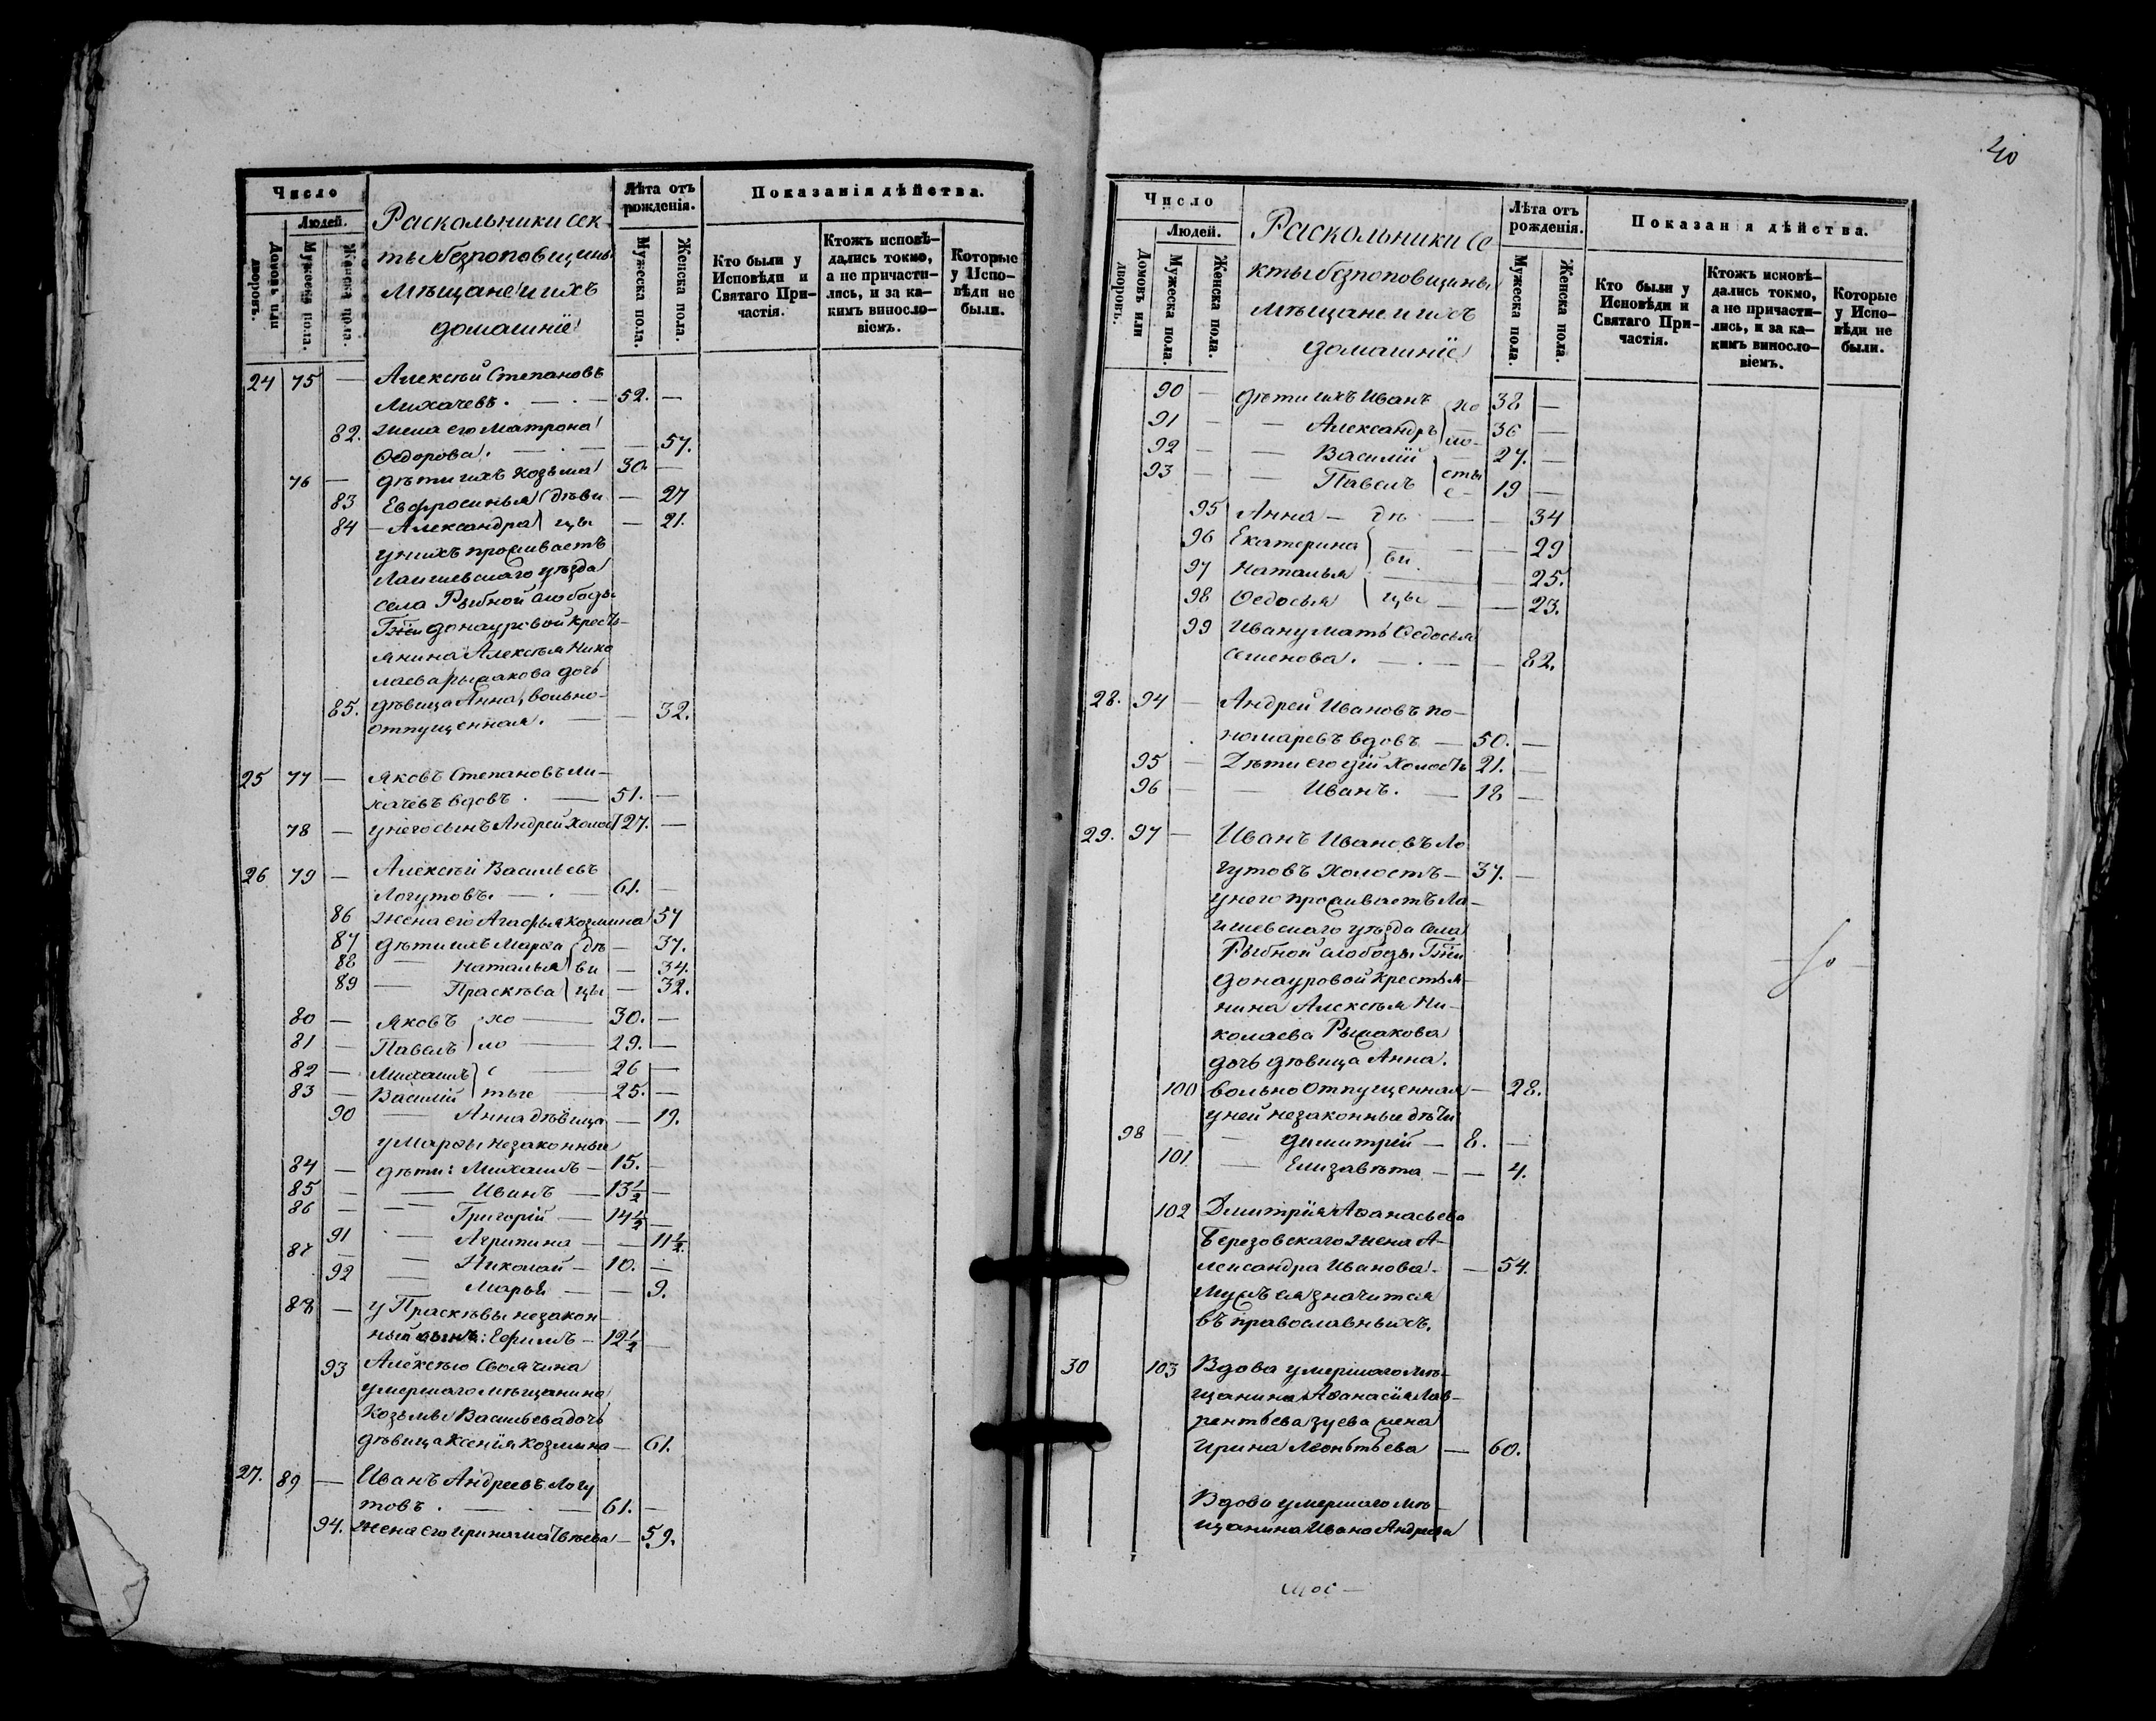 40
Число
Людей.
Домовъ или дворовъ.
Мужеска пола.
Женска пола.
Раскольники сек-
ты безпоповщины
мѣщане и ихъ
домашніе
Лѣта отъ рожденія.
Мужеска пола.
Женска пола.
Показанія дѣйства.
Кто были у Исповѣди и Святаго При-частія.
Ктожъ исповѣ-дались токмо, а не причасти-лись, и за ка-кимъ винослo-віемъ.
Которые у Испо-вѣди не были.
24 75 — Алексѣй Степановъ
Лихачевъ. — 52. —
82. жена его Матрона
Ѳедорова. — 57.
76 — дѣти ихъ Козьма 30. —
83 Евфросинья дѣви — 27
84 — Александра цы — 21.
у нихъ проживаетъ
Лаишевскаго уѣзда
села Рыбной слободы
Гжи Донауровой кресть-
янина Алексѣя Нико
лаева Рыжакова дочь
85. дѣвица Анна, вольно-
отпущенная. — — 32.
25 77 — Яковъ Степановъ Ли-
хачевъ вдовъ. — 51. —
78 — у него сынъ Андрей холост 27. —
26 79 — Алексѣй Васильевъ
Логутовъ. — 61. —
86 жена его Агафья Козмина 57
87 дѣти ихъ Марѳа дѣ — 37.
88 — Наталья ви — 34.
89 — Прасκѣва цы — 32.
80 — Яковъ хо — 30. —
81 — Павелъ ло — 29. —
82 — Михаилъ с — 26 —
83 — Василій тые — 25. —
90 — Анна дѣвица — 19.
у Марѳы незаконные
84 — дѣти: Михаилъ — 15. —
85 — — Иванъ — 13½ —
86 — — Григорій — 14½ —
91 — Агрипина — — 11½.
87 — — Николай — 10. —
92 — Марья — — 9.
88 — у Прасκѣвы незакон-
ный сынъ: Ефимъ — 12½ —
93 Алексѣю своячина
умершаго мѣщанина
Козьмы Васильева дочь
дѣвица Ксенія Козмина — 61.
27. 89 — Иванъ Андреевъ Логу
товъ. — 61. —
94. жена его Ирина Матвѣева — 59.
Число
Людей.
Домовъ или дворовъ.
Мужеска пола.
Женска пола.
Раскольники се
кты безпоповщины
мѣщане и ихъ
домашніе
Лѣта отъ рожденія.
Мужеска пола.
Женска пола.
Показан я дѣйства.
Кто были у Исповѣди и Святаго При-частія.
Ктожъ исповѣ-дались токмо, а не причасти-лись, и за ка-кимъ винослo-віемъ.
Которые у Испо-вѣди не были.
90 — дѣти ихъ Иванъ хо 38 —
91 — — Александръ ло- 36 —
92 — — Василій — 27. —
93 — — Павелъ сты е- 19 —
95 Анна — дѣ — — 34
96 Екатерина — — 29
97 Наталья ви — — 25.
98 Ѳедосья цы — — 23.
99 Ивану мать Ѳедосья
Семенова. — — 82.
28. 94 — Андрей Ивановъ По-
номаревъ вдовъ — 50. —
95 — Дѣти его холостъ 21. —
96 — — Иванъ. — 18 —
29. 97 — Иванъ Ивановъ Ло
гутовъ холостъ — 37. —
у него проживаетъ Ла-
ишевскаго уѣзда села
Рыбной слободы Гжи
Донауровой крестья-
нина Алексѣя Ни-
колаева Рыжакова
дочь дѣвица Анна.
100 вольноотпущенная — 28.
у ней незаконные дѣти
98 — — Димитрій — 8. —
101. — Елизавѣта — — 4.
102 Дмитрія Аѳанасьева
Березовскаго жена А-
лександра Иванова. — 54.
Мужъ ея значится
въ православныхъ.
30 103 Вдова умершаго мѣ-
щанина Аѳанасія Лав-
рентьева Зуева жена
Ирина Леонтьева — 60.
Вдова умершаго мѣ-
щанина Ивана Андреева